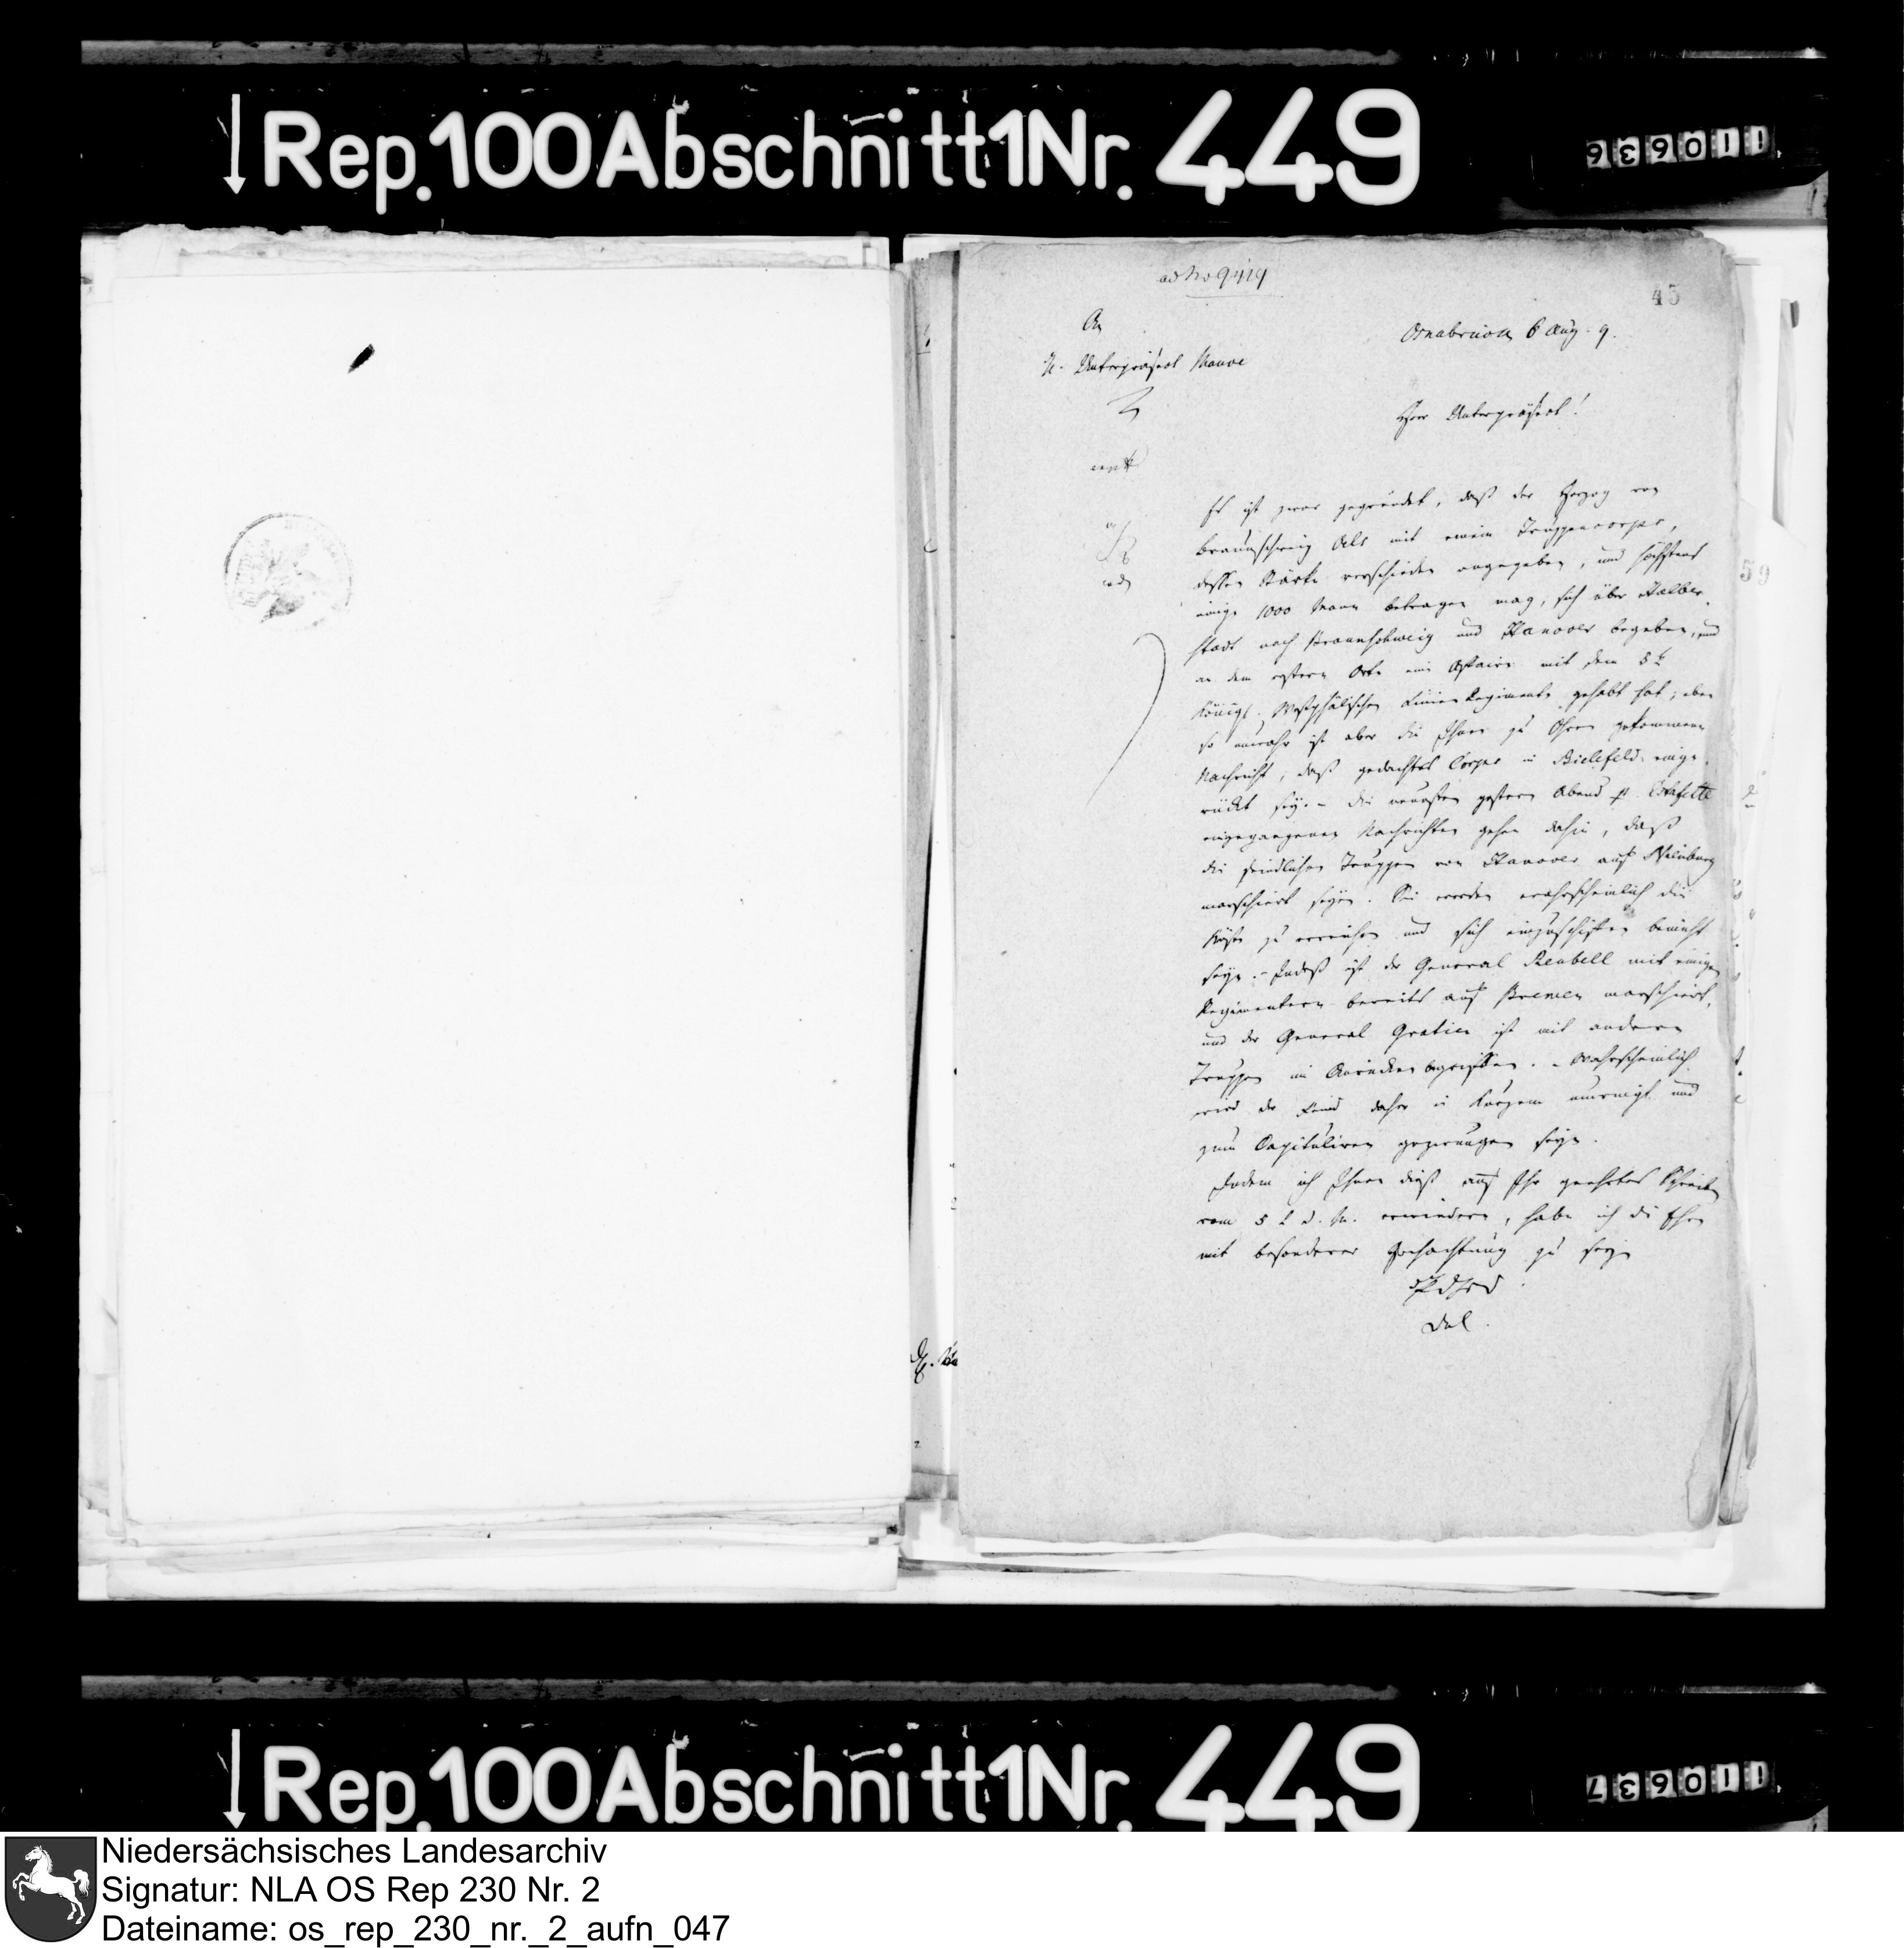 Rep.100Abschnitt1Nr.449
110636
ad No 9419
45
An
H. Unterpräfect Mauve
Osnabrück 6 Aug. 9.
Herr Unterpräfect!
Es ist zwar gegründet, daß der Herzog von
Braunschweig Oels mit einem Truppencorps,
dessen Stärke verschieden angegeben, und höchstens
einige 1000 Mann betragen mag, sich über Halber-
stadt nach Braunschweig und Hanover begeben, und
an dem erstern Orte eine Affaire mit dem 5t
Königl. Westphälischen Linien Regimente gehabt hat; eben
so unwahr ist aber die Ihnen zu Ohren gekommene
Nachricht, daß gedachtes Corps in Bielefeld einge-
rückt sey. – Die neuesten gestern Abend p. Estafette
eingegangenen Nachrichten gehen dahin, daß
die feindlichen Truppen von Hanover auf Nienburg
marschiert seyen. Sie werden wahrscheinlich die
Küste zu erreichen und sich einzuschiffen bemüht
seyn. – Indeß ist der General Reubell mit einigen
Regimentern bereits auf Bremen marschiert,
und der General Gratien ist mit andern
Truppen im Anrücken begriffen. – Wahrscheinlich
wird der Feind daher in Kurzem umringt und
zum Capituliren gezwungen seyn.
Indem ich Ihnen dieß auf Ihr geehrtes Schreiben
vom 5 t d. M. erwiedere, habe ich die Ehre
mit besonderer Hochachtung zu seyn
59
Rep.100Abschnitt1Nr.449
110637
Niedersächsisches Landesarchiv
Signatur: NLA OS Rep 230 Nr. 2
Dateiname: os_rep_230_nr._2_aufn_047